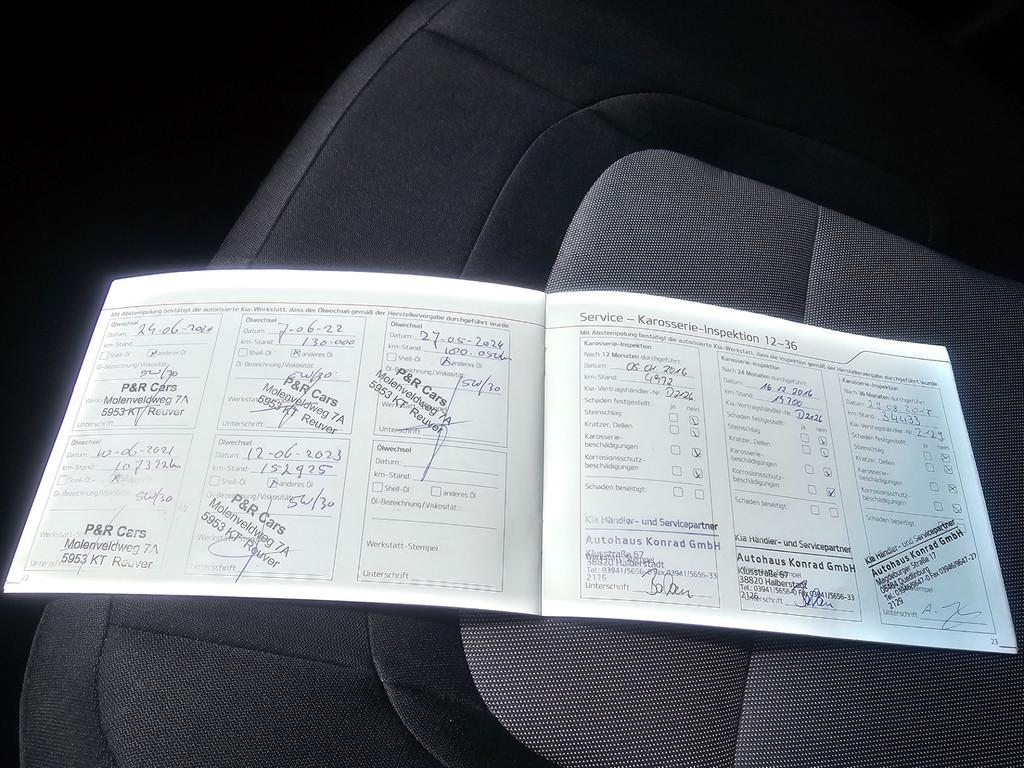 Mit Abstempelung bestätigt die autorisierte Kia-Werkstatt, dass der Ölwechsel gemäß der Herstellervorgabe durchgeführt wurde.
Ölwechsel
Datum: 24-06-2020
km-Stand
Shell-Öl anderes Öl
5W/30
P&R Cars
Molenveldweg 7A
5953 KT Reuver
Unterschrift
Ölwechsel
Datum: 7-06-22
km-Stand 130.000
Shell-Öl anderes Öl
5W/30
P&R Cars
Molenveldweg 7A
5953 KT Reuver
Unterschrift
Ölwechsel
Datum: 27-05-2024
km-Stand
Shell-Öl anderes Öl
5W/30
P&R Cars
Molenveldweg 7A
5953 KT Reuver
Unterschrift
Ölwechsel
Datum: 10-06-2021
km-Stand 107322km
Shell-Öl anderes Öl
Öl-Bezeichnung/Viskosität:
5W/30
P&R Cars
Werkstatt-Stempel
Molenveldweg 7A
5953 KT Reuver
Unterschrift
Ölwechsel
Datum: 12-06-2023
km-Stand 152925
Shell-Öl anderes Öl
Öl-Bezeichnung/Viskosität:
5W/30
P&R Cars
Molenveldweg 7A
5953 KT Reuver
Unterschrift
Ölwechsel
Datum:
km-Stand
Shell-Öl anderes Öl
Öl-Bezeichnung/Viskosität:
Werkstatt-Stempel
Unterschrift
22
Service – Karosserie-Inspektion 12–36
Mit Abstempelung bestätigt die autorisierte Kia-Werkstatt, dass die Inspektion gemäß der Herstellervorgabe durchgeführt wurde.
Karosserie-Inspektion
Nach 12 Monaten durchgeführt
Datum: 05.01.2016
km-Stand 4972
Kia-Vertragshändler-Nr. D2126
Schaden festgestellt: ja nein
Steinschlag
Kratzer, Dellen
Karosserie-
beschädigungen
Korrosionsschutz-
beschädigungen
Schaden beseitigt:
Kia Händler- und Servicepartner
Autohaus Konrad GmbH
Klusstraße 67
38820 Halberstadt
Tel.: 03941/5656-0 Fax 03941/5656-33
2126
Unterschrift
Karosserie-Inspektion
Nach 24 Monaten durchgeführt
Datum: 16.12.2016
km-Stand 19700
Kia-Vertragshändler-Nr. D2126
Schaden festgestellt: ja nein
Steinschlag
Kratzer, Dellen
Karosserie-
beschädigungen
Korrosionsschutz-
beschädigungen
Schaden beseitigt:
Kia Händler- und Servicepartner
Autohaus Konrad GmbH
Klusstraße 67
38820 Halberstadt
Tel.: 03941/5656-0 Fax 03941/5656-33
2126
Unterschrift
Karosserie-Inspektion
Nach 36 Monaten durchgeführt
Datum:
km-Stand 34433
Kia-Vertragshändler-Nr.
Schaden festgestellt: ja nein
Steinschlag
Kratzer, Dellen
Karosserie-
beschädigungen
Korrosionsschutz-
beschädigungen
Schaden beseitigt:
Kia Händler- und Servicepartner
Autohaus Konrad GmbH
Magdeburger Straße 17
06484 Quedlinburg
Tel.: 03946/9647-0 Fax 03946/9647-27
2129
Unterschrift
23